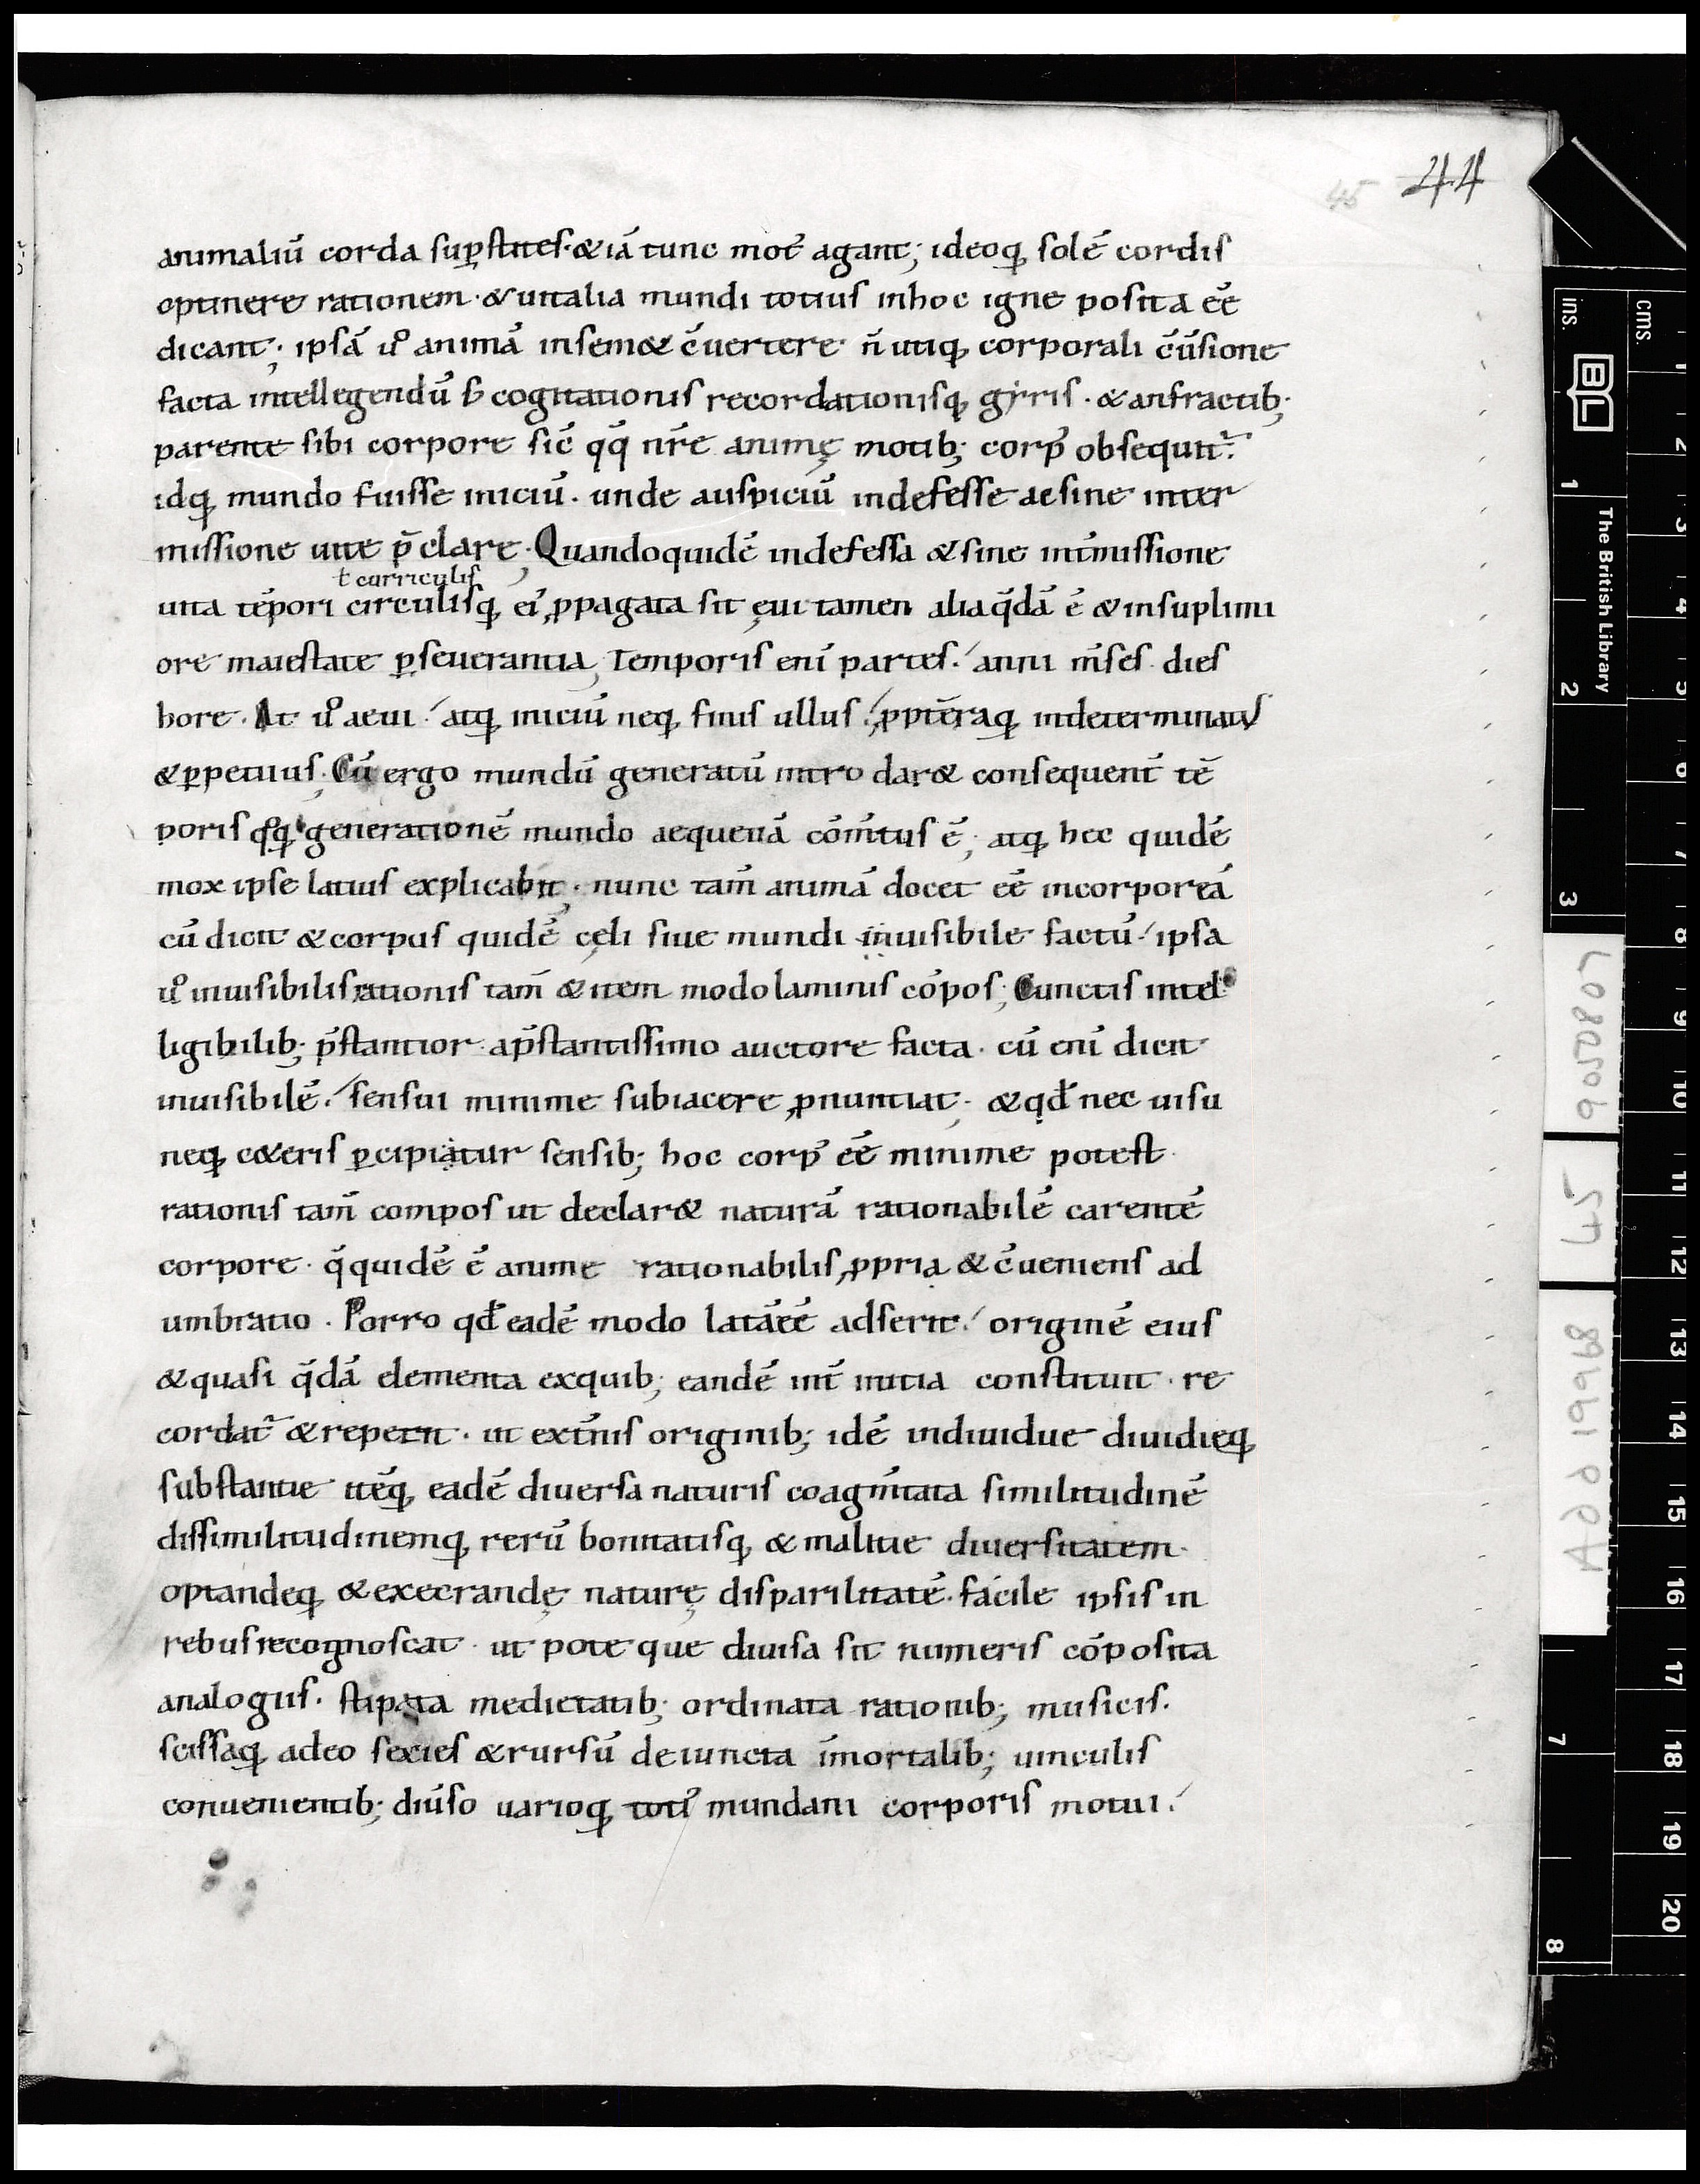 45 44
animaliū corda suꝑstites·&iā tunc mot̄ agant; ideoq; solē cordis
optinere rationem·&uitalia mundi totius inhoc igne posita eē
dicant; ipsā ũ animā insem& c̄uertere n̄ utiq; corporali c̄ūsione
facta intellegendū s; cogitationis recordationisq; gyris·&anfractib;
parente sibi corpore sic̄ qq̄ nr̄e animę motib; corp̄ obsequit᷑.
idq; mundo fuisse iniciū. unde auspiciū indefesse aesine inter
missione uite p̄clare; Quandoquidē indefessa &sine int̄missione
ł curriculis
uita tēpori circulisq; ei ꝓpagata sit ęui tamen aliaq̄dā ē &insuplimi
ore maiestate ꝑseuerantia; Temporis eni partes. anni m̄ses dies
hore. At ũ aeui atq; iniciū neq; finis ullus ꝓpt̄eraq; indeterminatus
&ꝑpetuus; Cū ergo mundū generatū intro dar& consequent̄ tē
poris qq; generationē mundo aequeuā com̄tus ē; atq; hec quidē
mox ipse latius explicabit; nunc tam̄ animā docet eē incorporeā
cū dicit &corpus quidē cęli siue mundi inuisibile factū ipsa
ũ inuisibilis rationis tam̄ &item modolaminis cōpos; Cunctis intel
ligibilib; p̄stantior ap̄stantissimo auctore facta. cū eni dicit
inuisibilē. sensui minime subiacere ꝓnuntiat; &qd̄ nec uisu
neq; c&eris ꝑcipiatur sensib; hoc corp᷒ eē minime potest
rationis tam̄ compos ut declar& naturā rationabilē carentē
corpore. q̄quidē ē anime rationabilis ꝓpria &c̄ueniens ad
umbratio. Porro qd̄ eadē modo latāeē adserit. originē eius
&quasi q̄dā elementa exquib; eandē int̄ initia constituit. re
cordat᷑ &repetit. ut ext̄nis originib; idē indiuidue diuidieq;
substantie itēq; eadē diuersa naturis coagm̄tata similitudinē
dissimilitudinemq; rerū bonitatisq; &malitie diuersitatem
optandeq; &execrandę naturę disparilitatē. facile ipsis in
rebus recognoscat. ut pote que diuisa sit numeris cōposita
analogiis. stipata medietatib; ordinata rationib; musicis.
scissaq; adeo sexies &rursū deiuncta īmortalib; uinculis
conuenientib; diūso uarioq; toti᷒ mundani corporis motui.
The British Library
BL
ins.
1
2
3
7
8
cms.
1
2
3
4
5
6
7
8
9
10
11
12
13
14
15
16
17
18
19
20
9050807
45
Add 19968